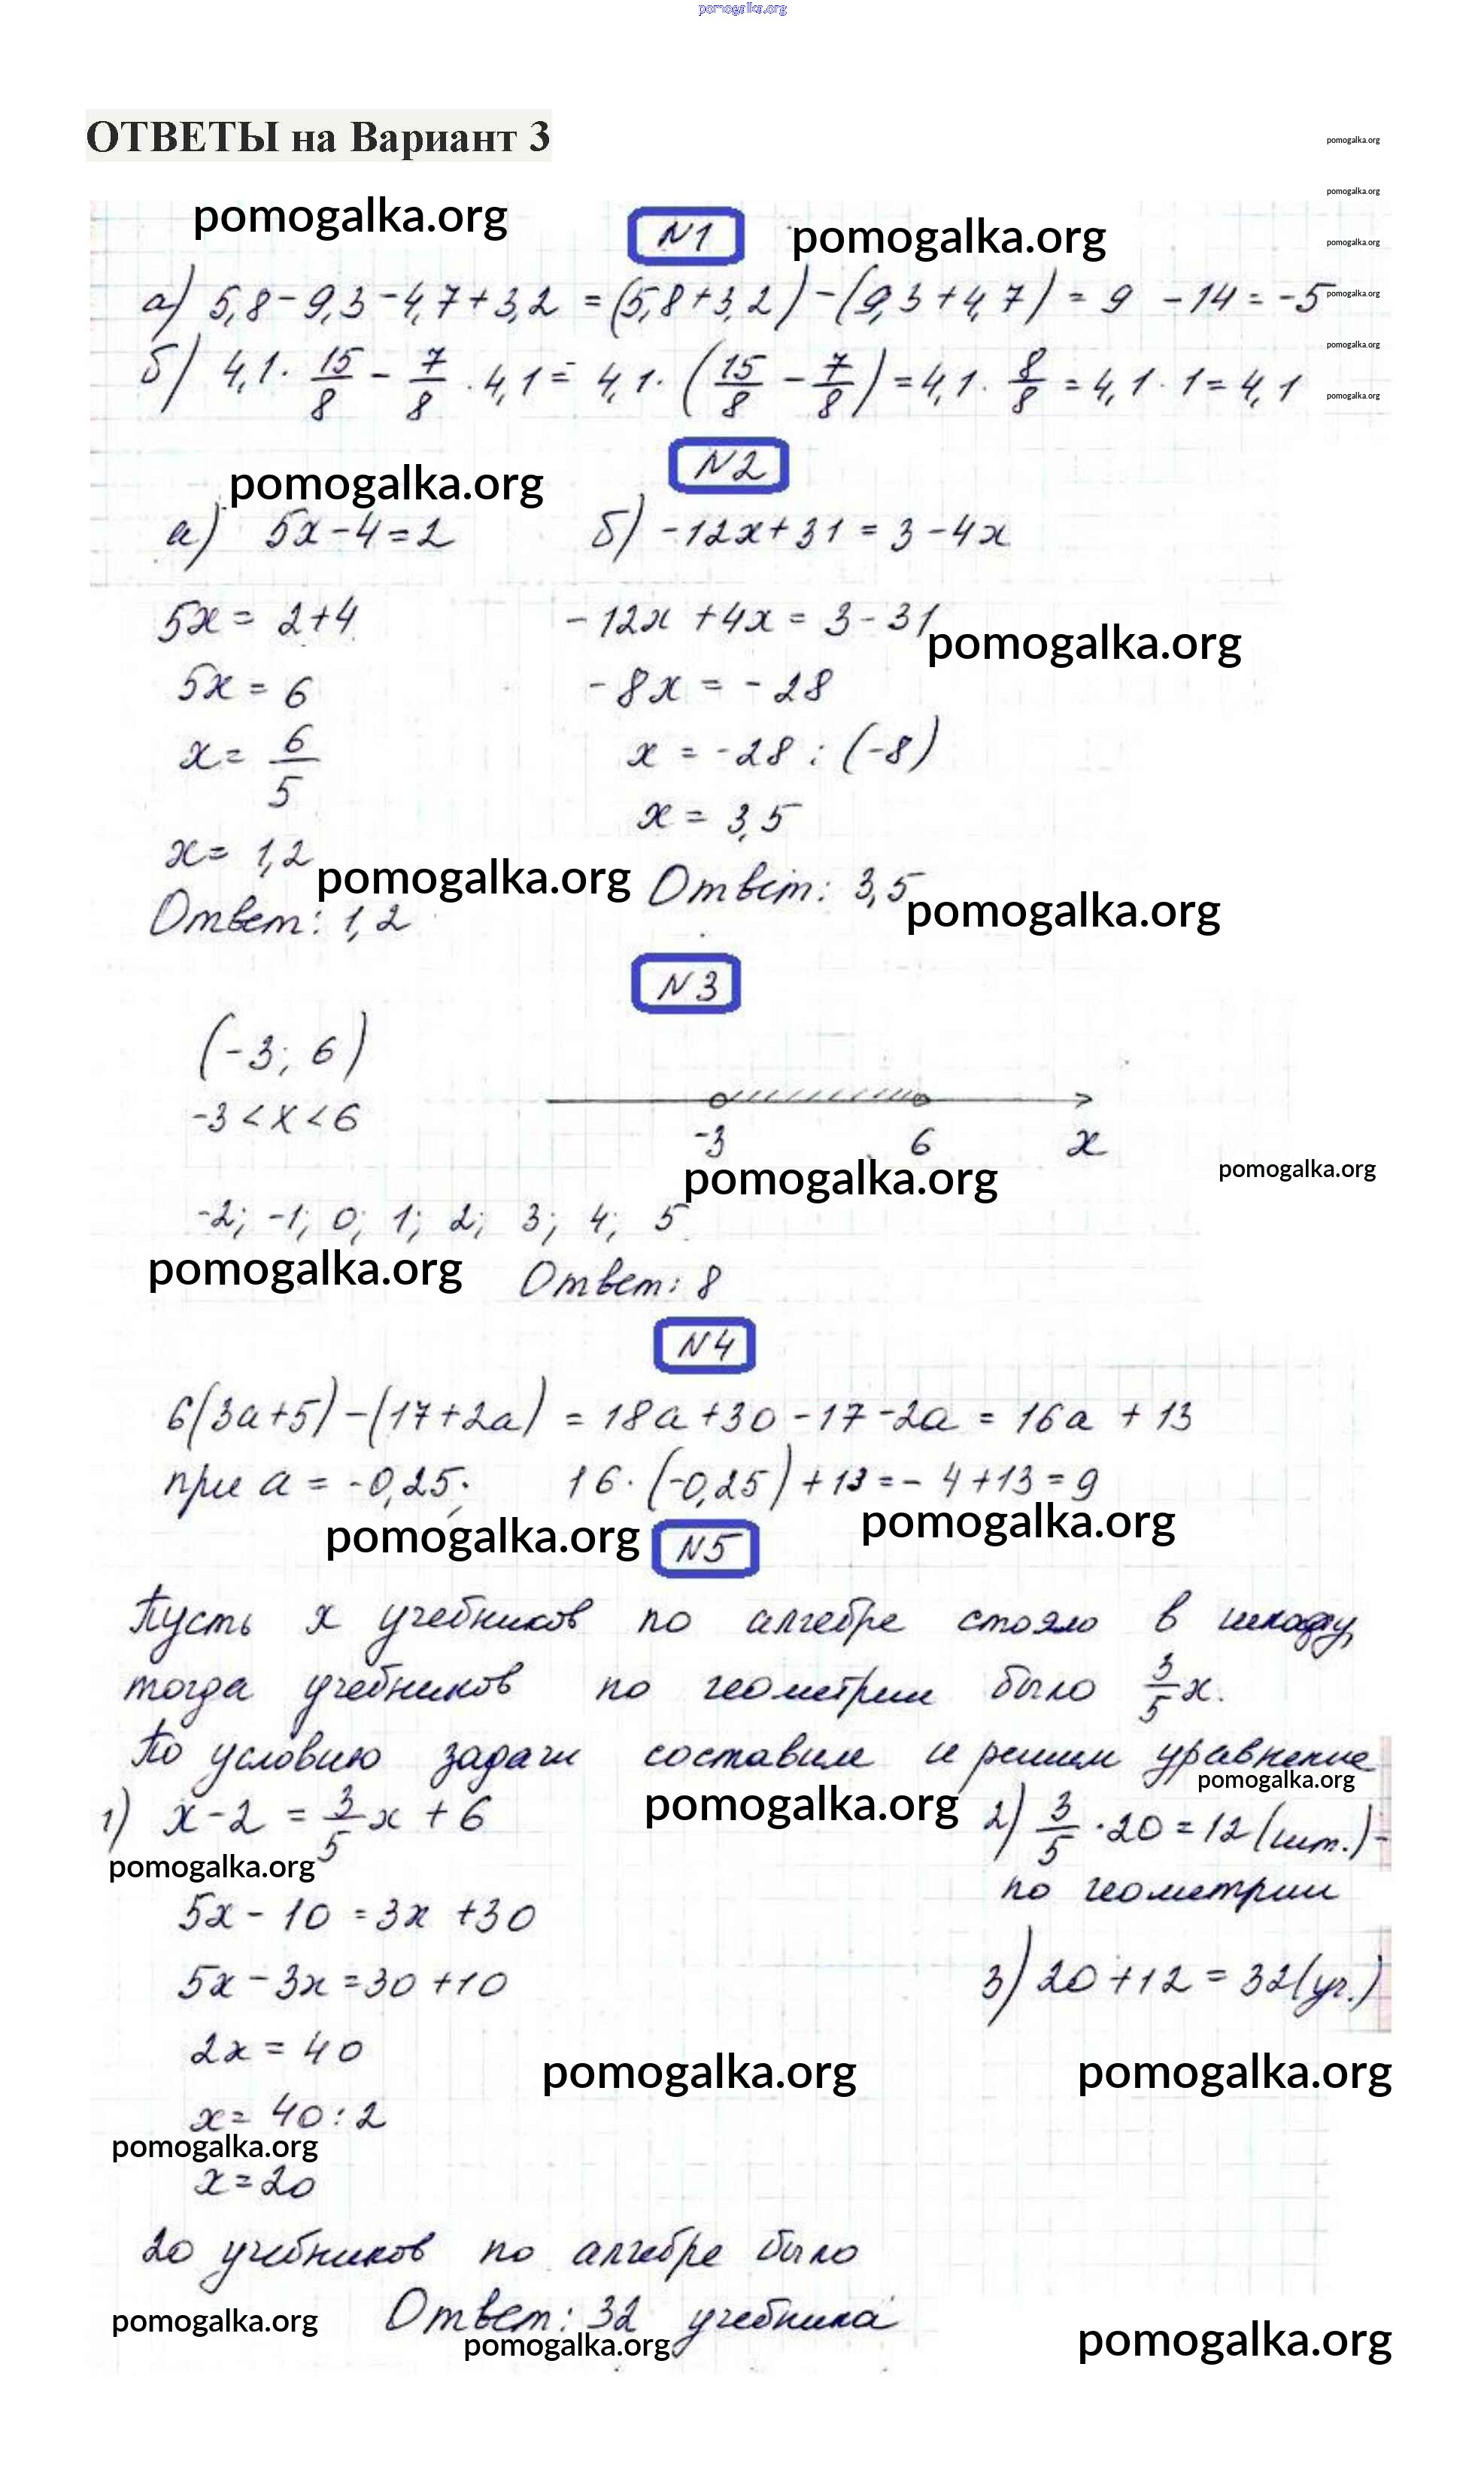 pomogalka.org
ОТВЕТЫ на Вариант 3
pomogalka.org
pomogalka.org
pomogalka.org
N1
pomogalka.org
pomogalka.org
а) 5,8 - 9,3 - 4,7 + 3,2 = (5,8 + 3,2) - (9,3 + 4,7) = 9 - 14 = -5
pomogalka.org
pomogalka.org
б) 4,1 · 15/8 - 7/8 · 4,1 = 4,1 · (15/8 - 7/8) = 4,1 · 8/8 = 4,1 · 1 = 4,1
pomogalka.org
N2
pomogalka.org
а) 5x - 4 = 2
5x = 2 + 4
5x = 6
x = 6/5
x = 1,2
Ответ: 1,2
б) -12x + 31 = 3 - 4x
-12x + 4x = 3 - 31
-8x = -28
x = -28 : (-8)
x = 3,5
Ответ: 3,5
pomogalka.org
pomogalka.org
pomogalka.org
N3
(-3; 6)
-3 < x < 6
-3 6 x
pomogalka.org
pomogalka.org
-2; -1; 0; 1; 2; 3; 4; 5
pomogalka.org
Ответ: 8
N4
6(3a + 5) - (17 + 2a) = 18a + 30 - 17 - 2a = 16a + 13
при a = -0,25; 16 · (-0,25) + 13 = -4 + 13 = 9
pomogalka.org
pomogalka.org
N5
Пусть x учебников по алгебре стояло в шкафу,
тогда учебников по геометрии было 3/5 x.
По условию задачи составим и решим уравнение
pomogalka.org
pomogalka.org
1) x - 2 = 3/5 x + 6
pomogalka.org
5x - 10 = 3x + 30
5x - 3x = 30 + 10
2x = 40
x = 40 : 2
pomogalka.org
x = 20
2) 3/5 · 20 = 12 (шт.) -
по геометрии
3) 20 + 12 = 32 (уч.)
pomogalka.org
pomogalka.org
20 учебников по алгебре было
pomogalka.org
Ответ: 32 учебника
pomogalka.org
pomogalka.org